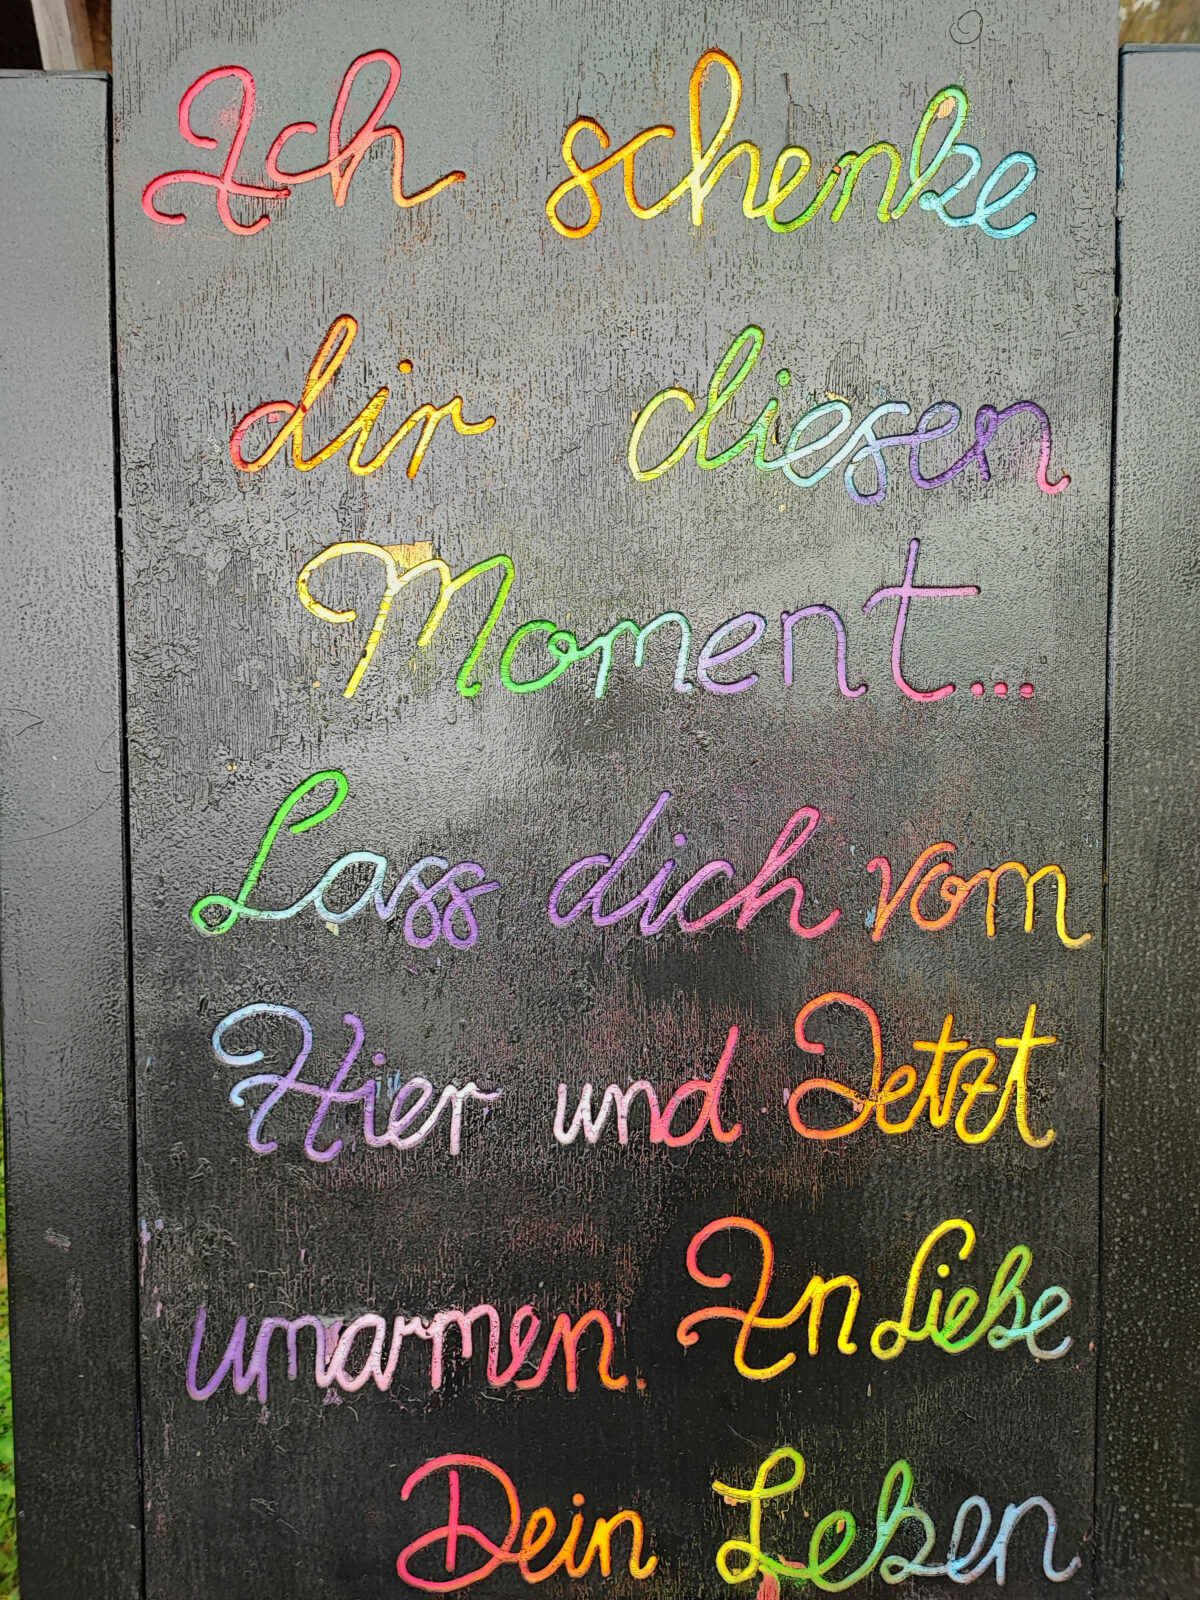 Ich schenke
dir diesen
Moment...
Lass dich vom
Hier und Jetzt
umarmen. In Liebe
Dein Leben